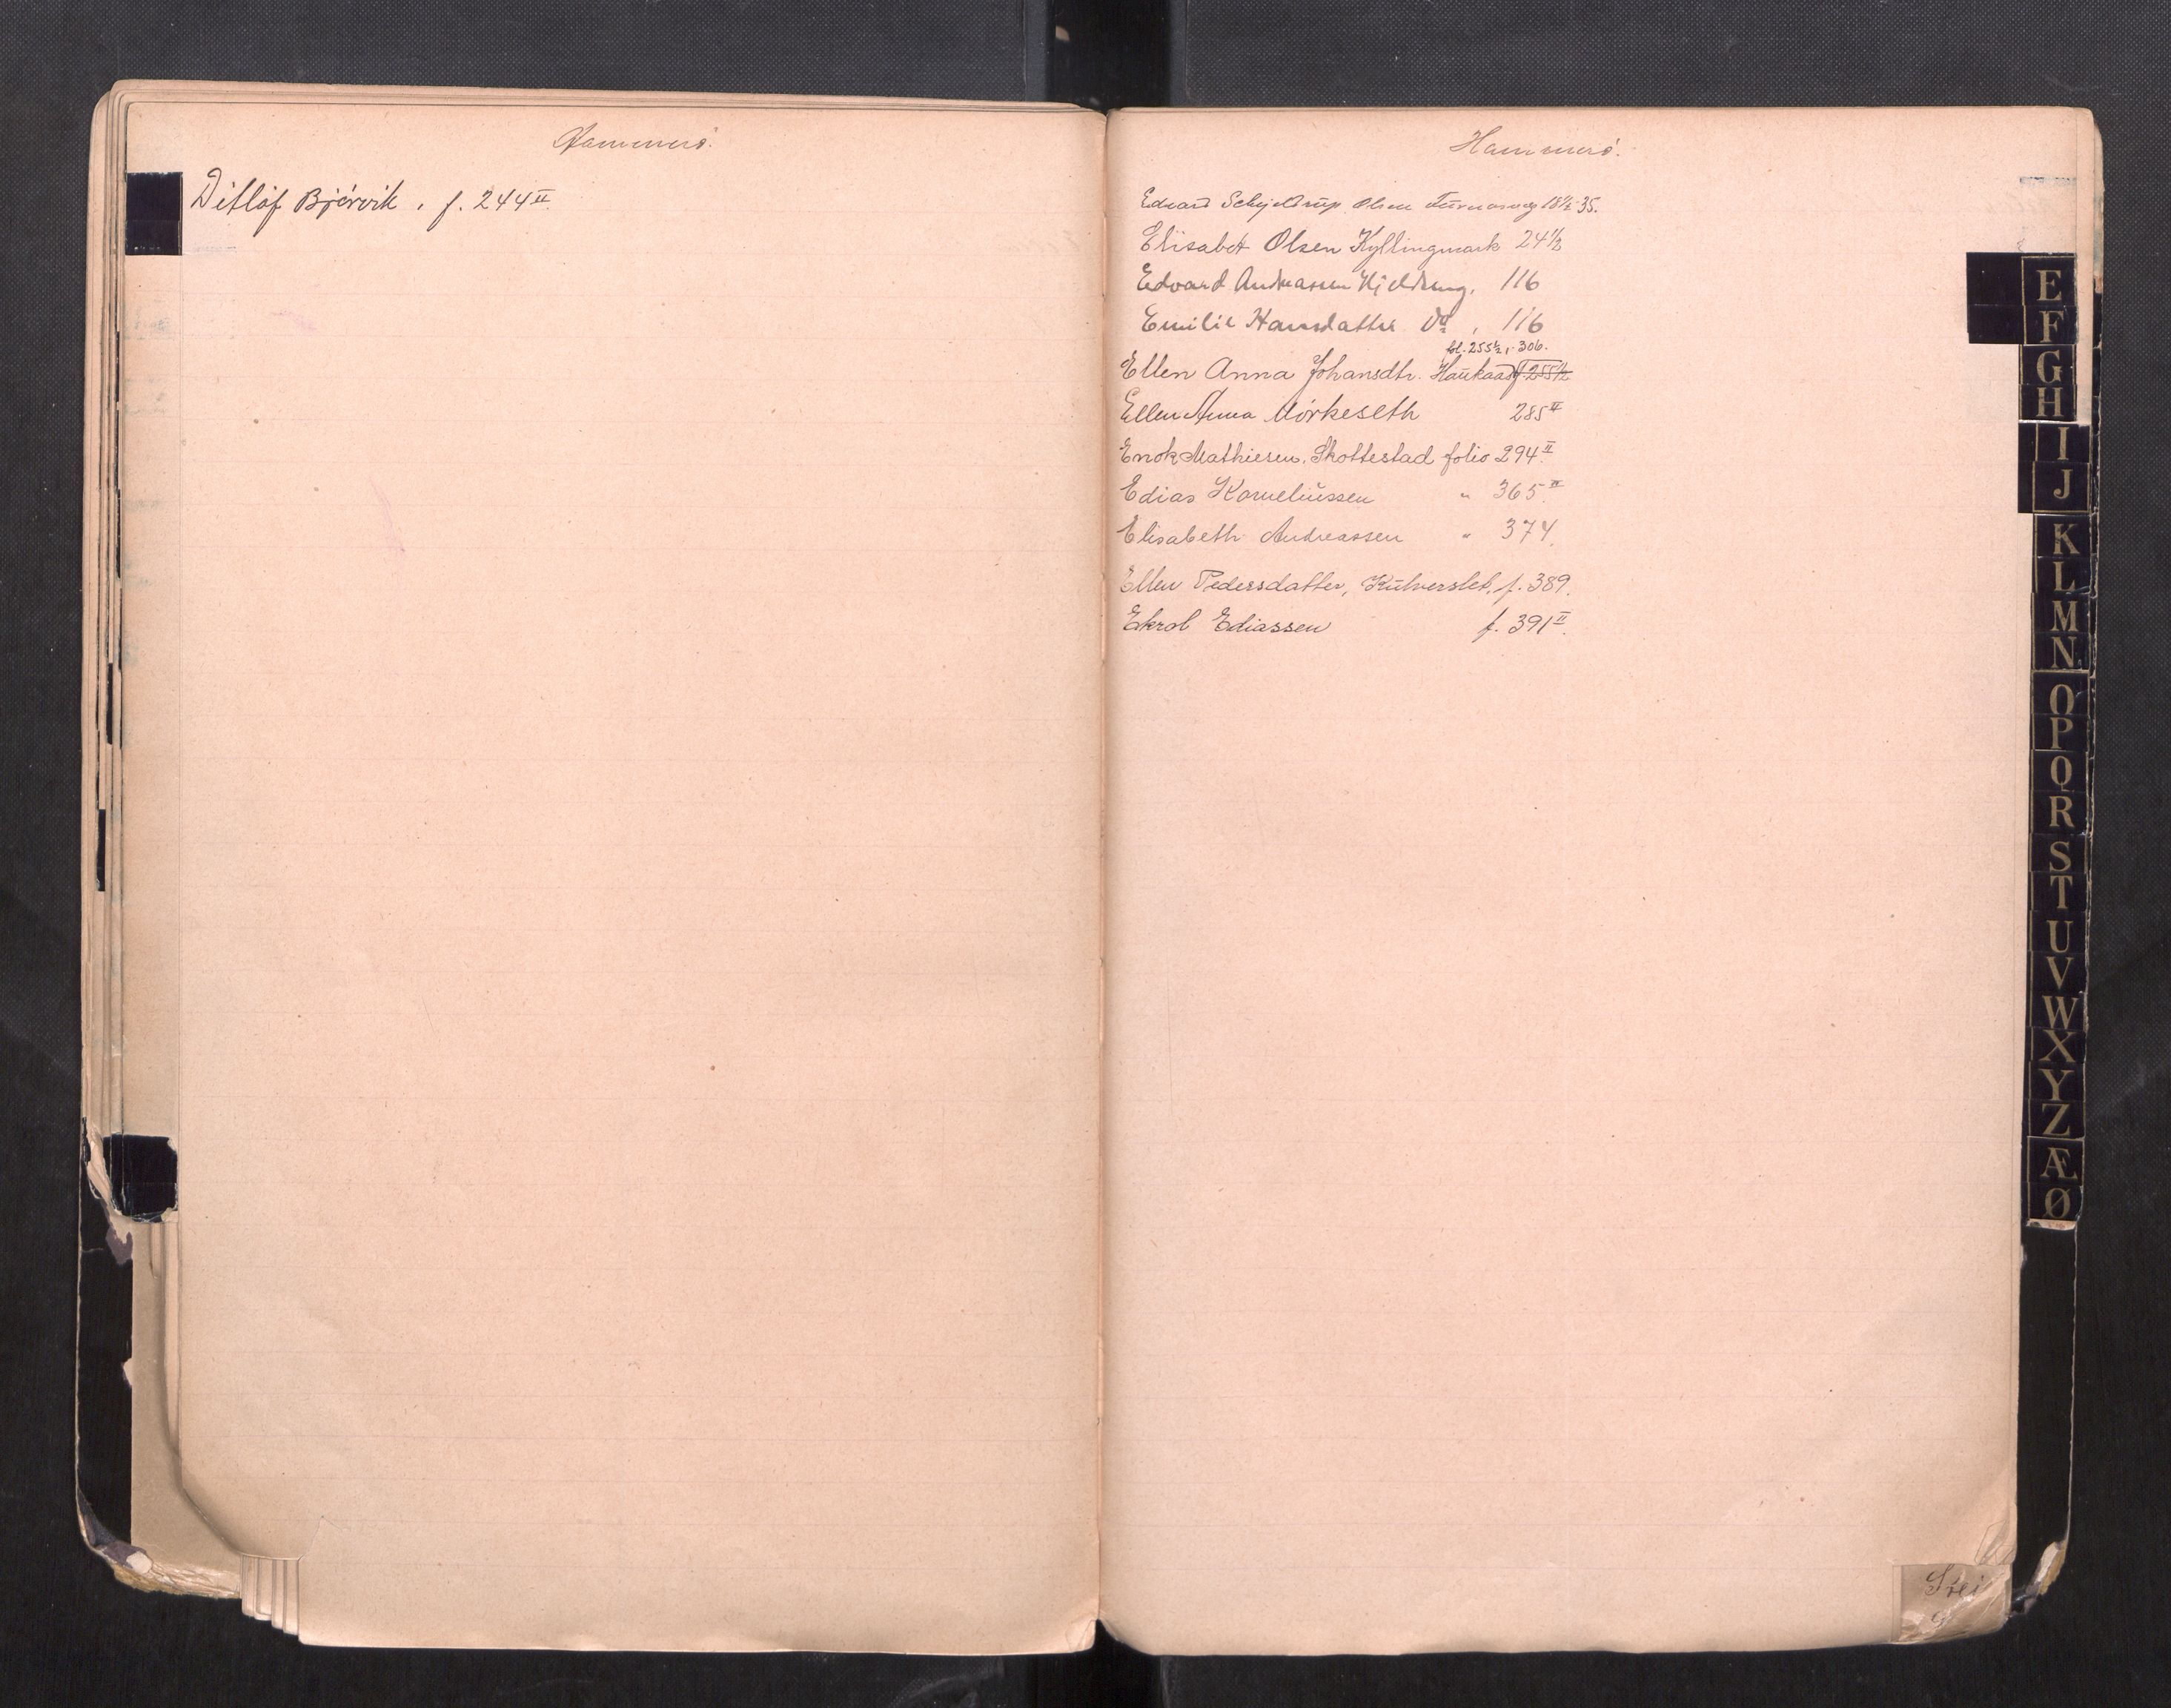 Hammerö.
Ditlef Bjørvik, f. 244 II
Hammerö.
Edvard Schjeldrup Olsen 18½ 35.
Elisabet Olsen Kyllingmark 24½
Edvard Andreassen 116
Emilie Hansdatter Do, 116
fol. 255½, 306.
Ellen Anna Johansdtr. Haukaas f 255½
Ellen Anna Mörkeseth 285 II
Enok Mathiesen, Skottestad folio 294 II
Edias Korneliussen " 365 II
Elisabeth Andreassen " 374.
Ellen Pedersdatter, f. 389.
Ekrol Ediassen f. 391 II.
E
F
G
H
I
J
K
L
M
N
O
P
Q
R
S
T
U
V
W
X
Y
Z
Æ
Ø